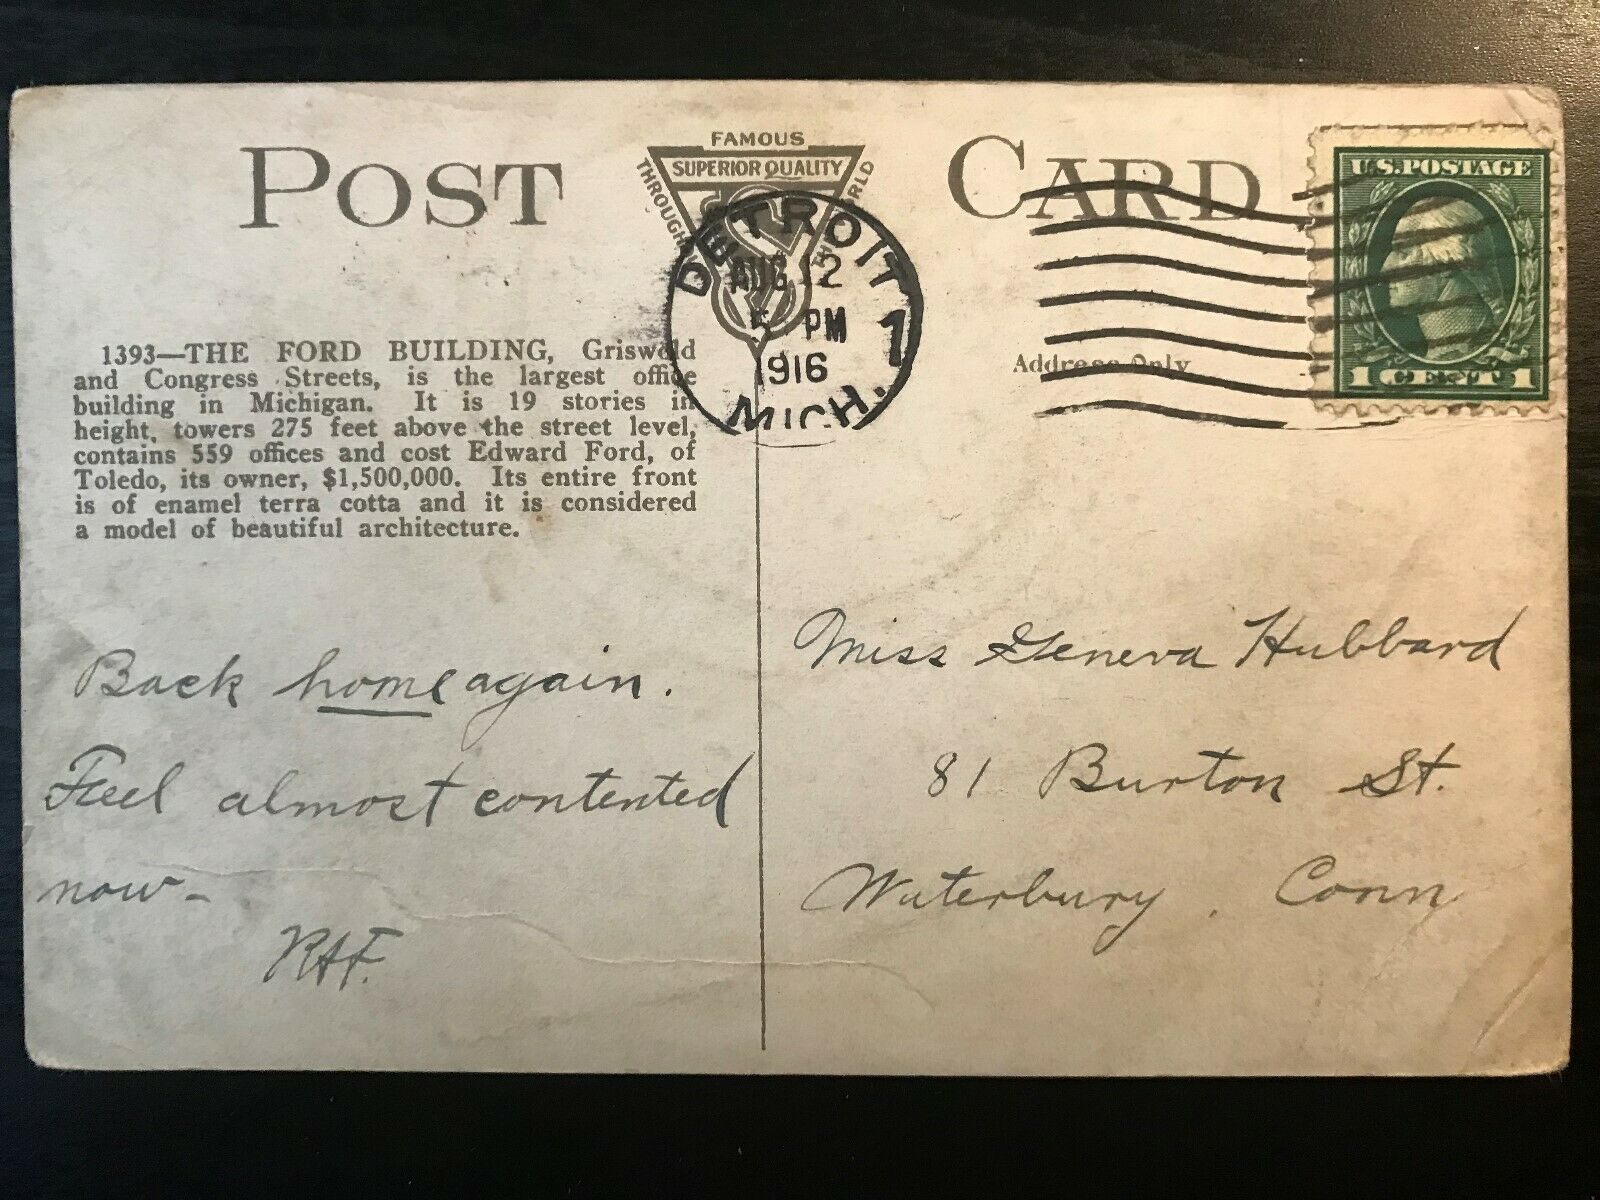 POST CARD
FAMOUS
SUPERIOR QUALITY
THROUGH
DETROIT
AUG 12
5 PM
1916
MICH.
1
U.S. POSTAGE
1 CENT 1
Address Only
1393—THE FORD BUILDING, Griswold
and Congress Streets, is the largest office
building in Michigan. It is 19 stories in
height, towers 275 feet above the street level,
contains 559 offices and cost Edward Ford, of
Toledo, its owner, $1,500,000. Its entire front
is of enamel terra cotta and it is considered
a model of beautiful architecture.
Back home again.
Feel almost contented
now-
RHF.
Miss Geneva Hubbard
81 Burton St.
Waterbury, Conn